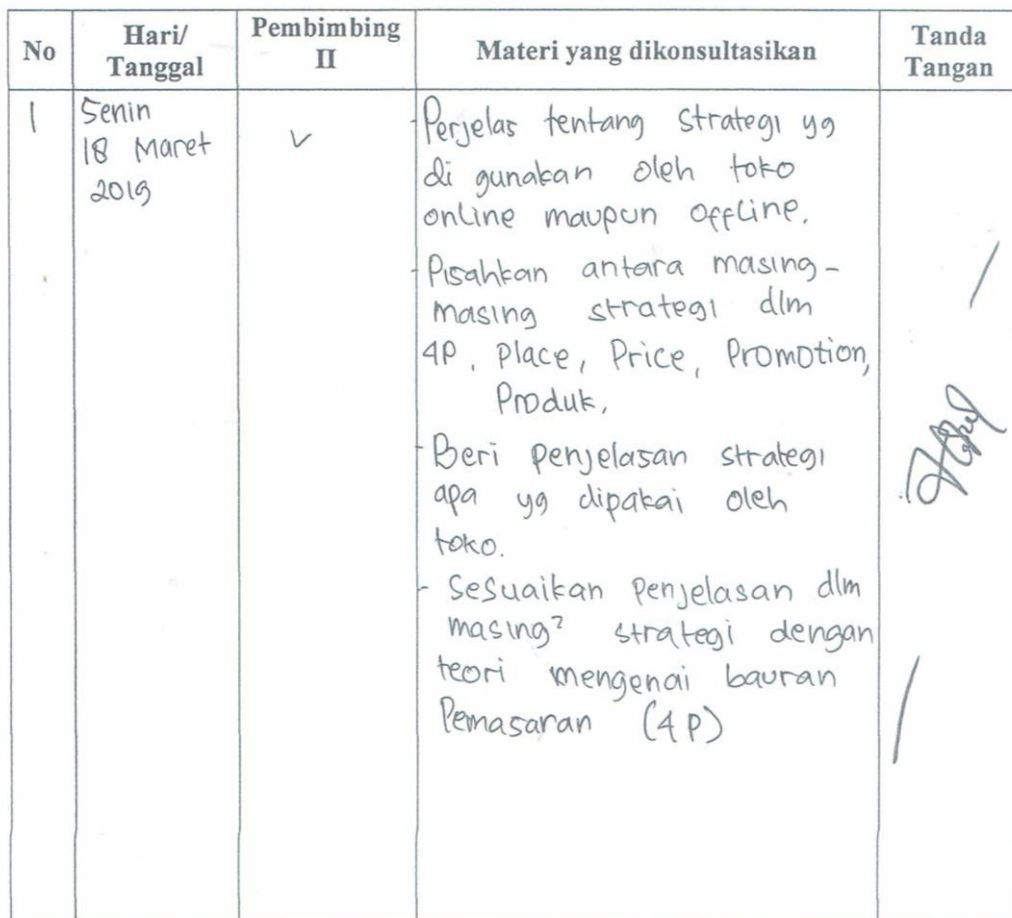 No
Hari/
Tanggal
Pembimbing
II
Materi yang dikonsultasikan
Tanda
Tangan
1
Senin
18 Maret
2019
- Perjelas tentang strategi yg
di gunakan oleh toko
online maupun offline.
- Pisahkan antara masing-
masing strategi dlm
4P, Place, Price, Promotion,
Produk,
- Beri penjelasan strategi
apa yg dipakai oleh
toko.
- Sesuaikan penjelasan dlm
masing² strategi dengan
teori mengenai bauran
Pemasaran (4P)